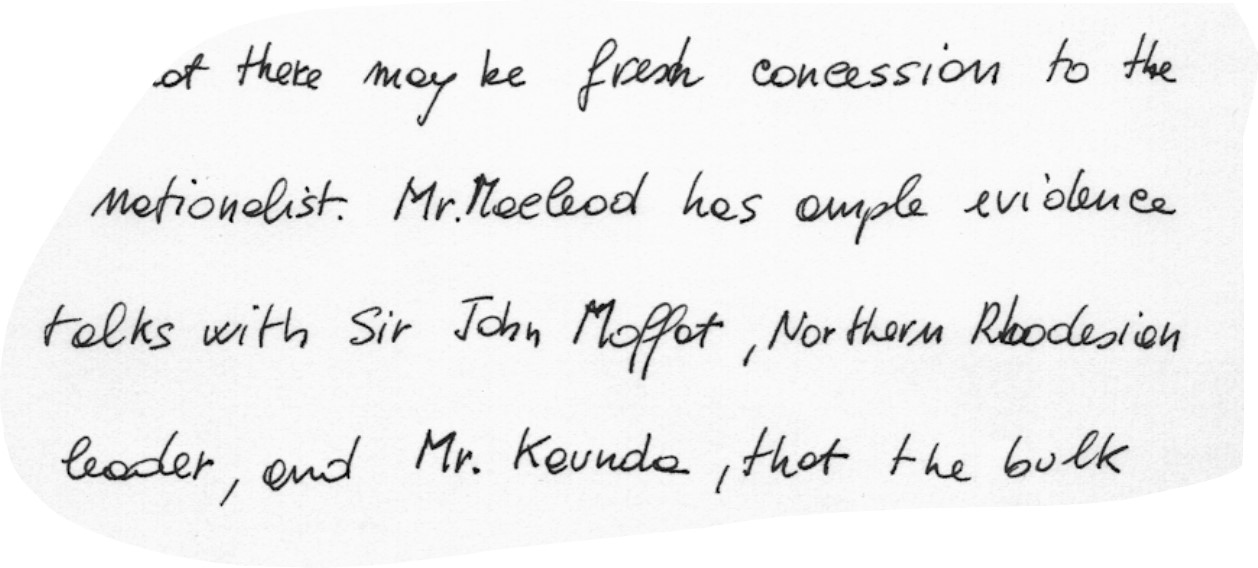 there may be fresh concession to the
nationalist. Mr. Macleod has ample evidence
talks with Sir John Moffat, Northern Rhodesian
leader, and Mr. Kaunda, that the bulk